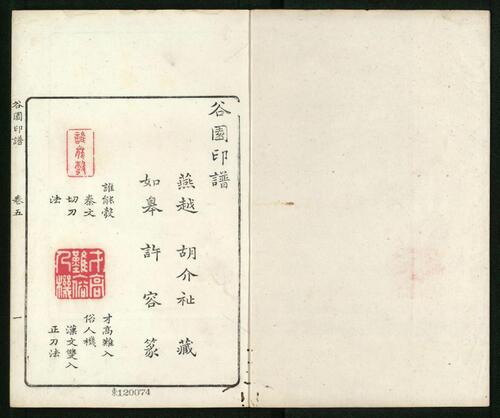 谷園印譜
燕越 胡介祉 藏
如皋 許容 篆
誰能殼
秦文
切刀
法
才高難入
俗人機
漢文雙入
正刀法
谷園印譜
卷五
一
東120074
才高
難入俗
人機